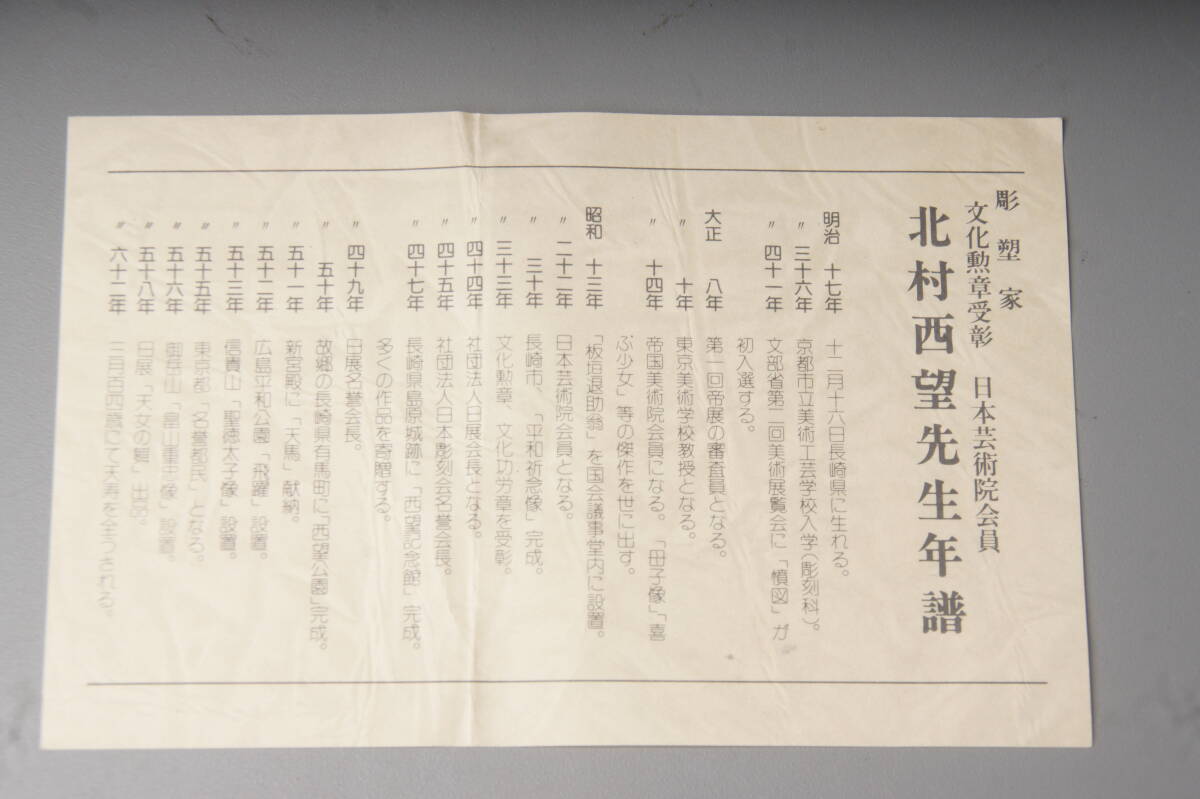 彫塑家
文化勲章受彰 日本芸術院会員
北村西望先生年譜
明治 十七年 十二月十六日長崎県に生れる。
〃 三十六年 京都市立美術工芸学校入学(彫刻科)。
〃 四十一年 文部省第二回美術展覧会に「憤図」が
初入選する。
大正 八年 第一回帝展の審査員となる。
〃 十年 東京美術学校教授となる。
〃 十四年 帝国美術院会員になる。「母子像」「喜
ぶ少女」等の傑作を世に出す。
昭和 十三年 「板垣退助翁」を国会議事堂内に設置。
〃 二十二年 日本芸術院会員となる。
〃 三十年 長崎市、「平和祈念像」完成。
〃 三十三年 文化勲章、文化功労章を受彰。
〃 四十四年 社団法人日展会長となる。
〃 四十五年 社団法人日本彫刻会名誉会長。
〃 四十七年 長崎県島原城跡に「西望記念館」完成。
多くの作品を寄贈する。
〃 四十九年 日展名誉会長。
〃 五十年 故郷の長崎県有馬町に「西望公園」完成。
〃 五十一年 新宮殿に「天馬」献納。
〃 五十二年 広島平和公園「飛躍」設置。
〃 五十三年 信貴山「聖徳太子像」設置。
〃 五十五年 東京都「名誉都民」となる。
〃 五十六年 御岳山「畠山重忠像」設置。
〃 五十八年 日展「天女の舞」出品。
〃 六十二年 三月百四歳にて天寿を全うされる。